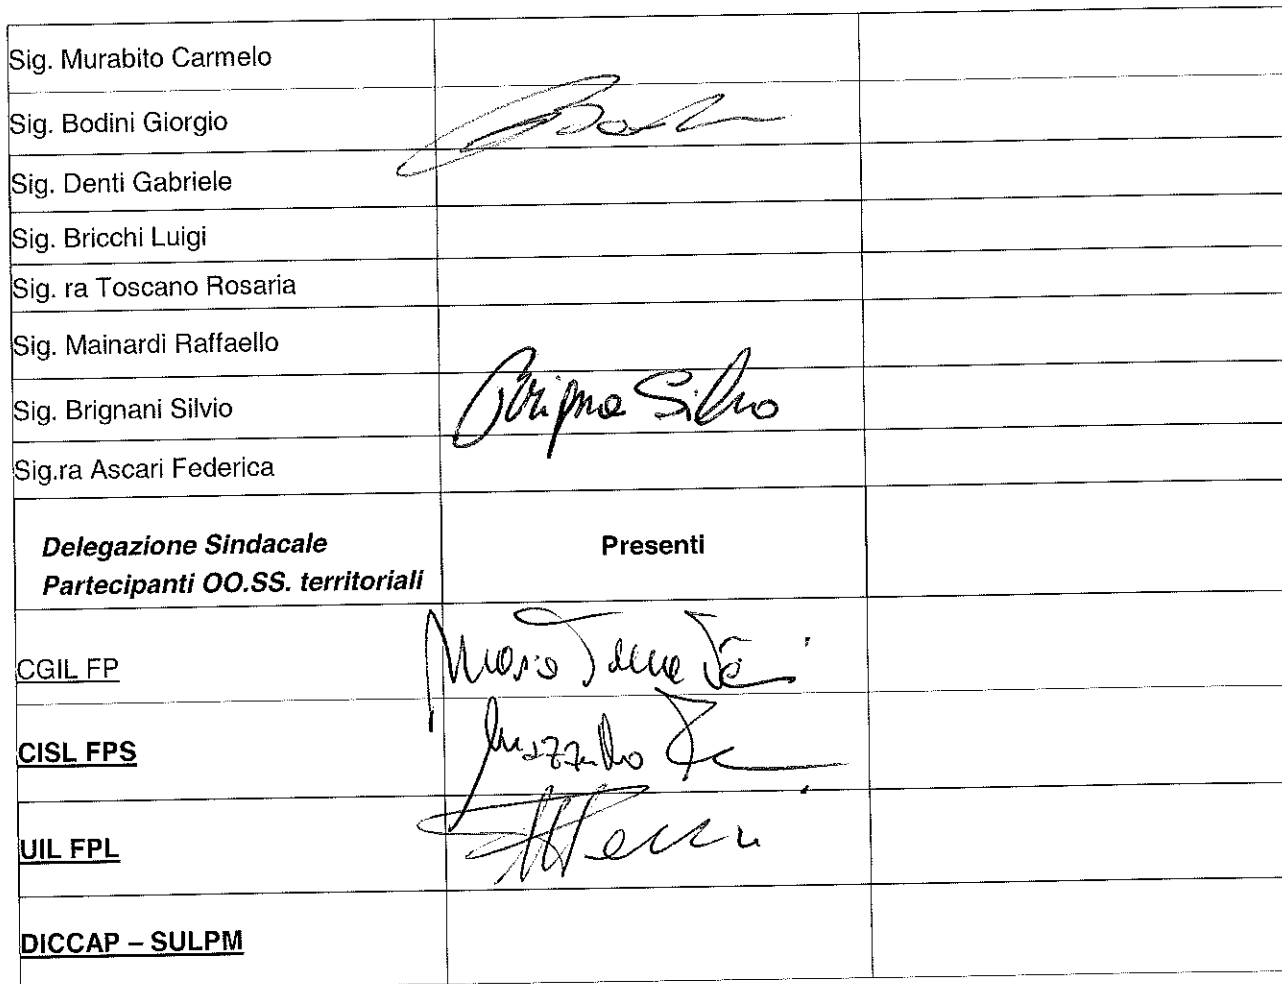 Sig. Murabito Carmelo
Sig. Bodini Giorgio
Sig. Denti Gabriele
Sig. Bricchi Luigi
Sig. ra Toscano Rosaria
Sig. Mainardi Raffaello
Sig. Brignani Silvio Silvio
Sig.ra Ascari Federica
Delegazione Sindacale Presenti
Partecipanti OO.SS. territoriali
CGIL FP
CISL FPS
UIL FPL
DICCAP – SULPM